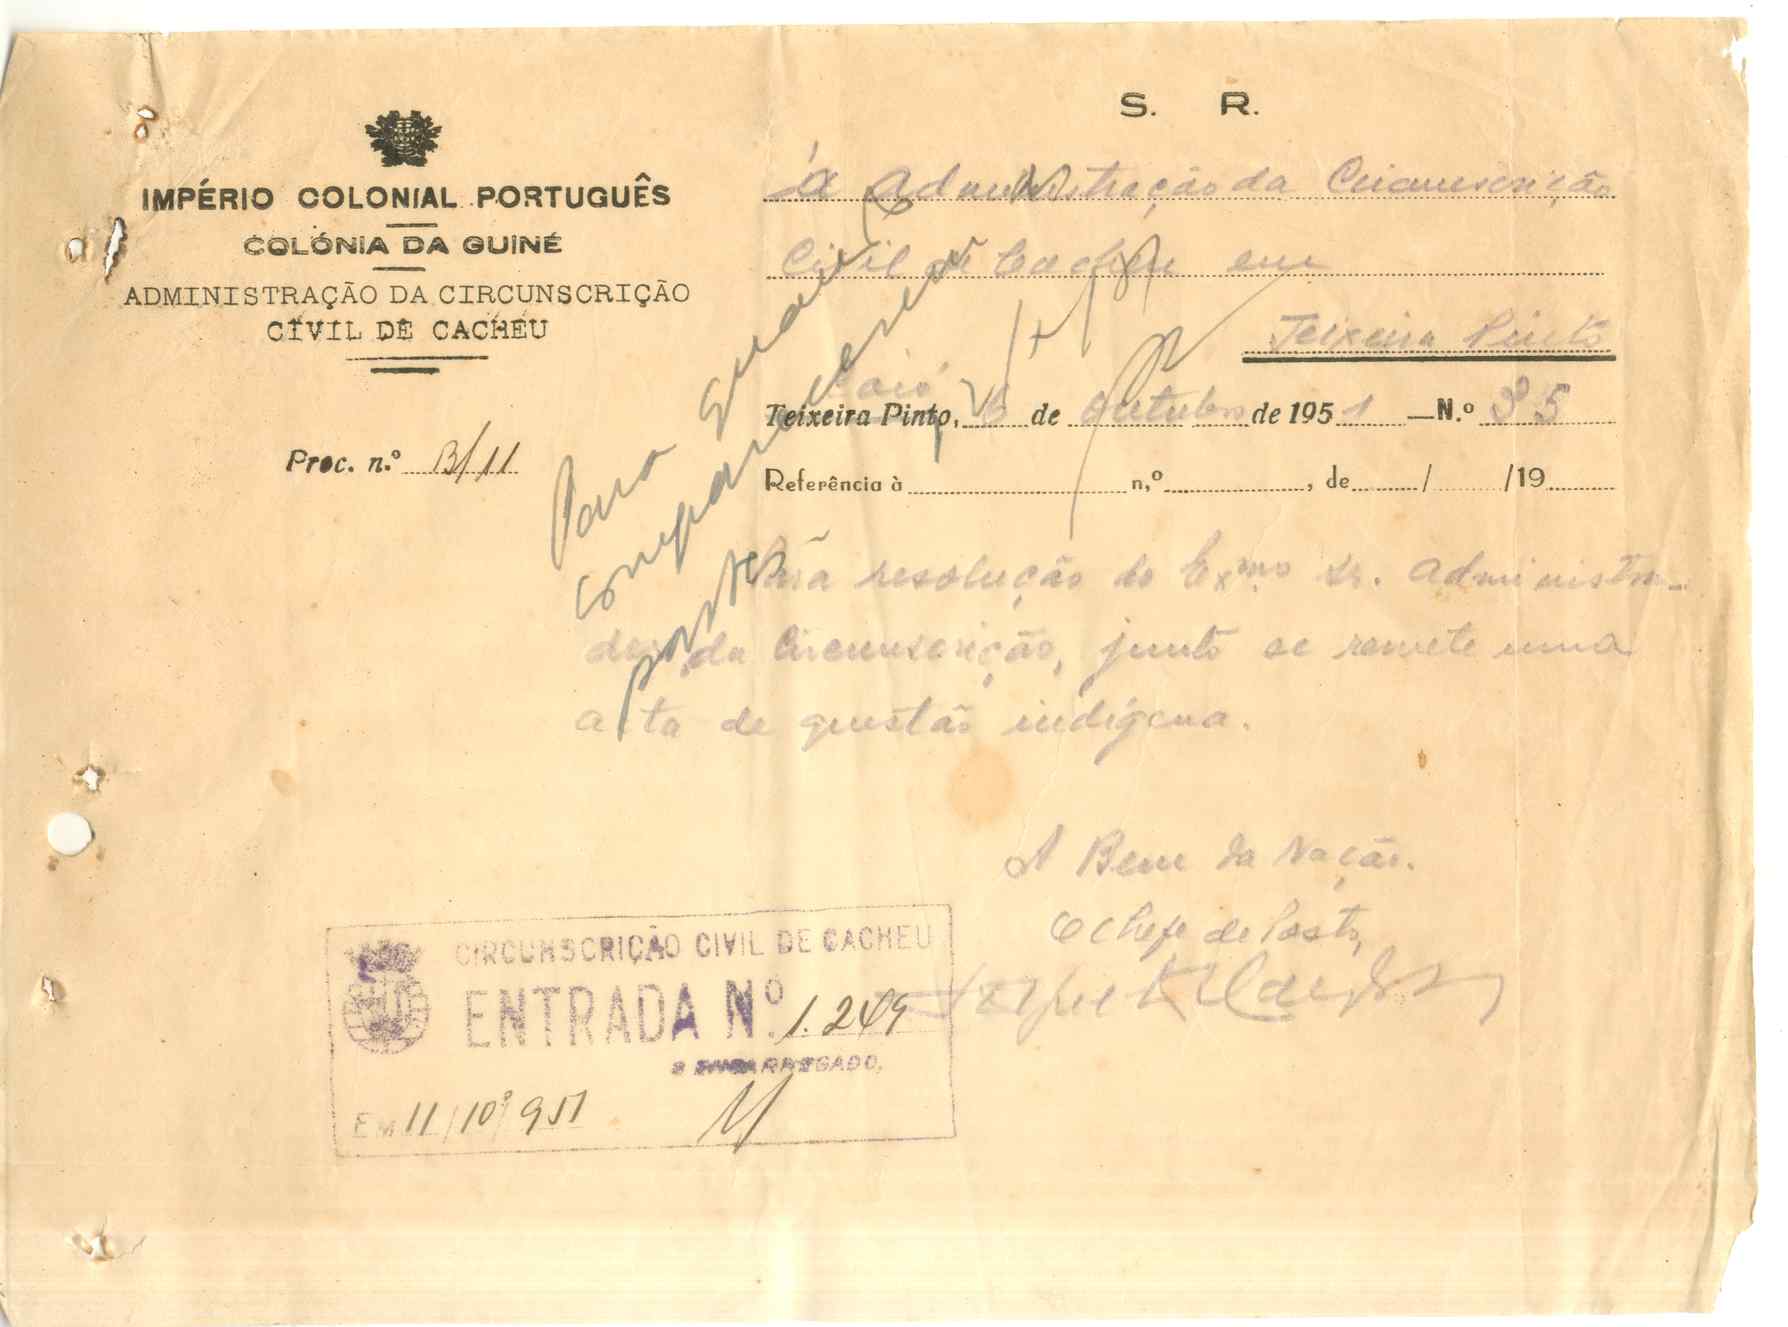 S. R.
IMPÉRIO COLONIAL PORTUGUÊS
COLÓNIA DA GUINÉ
ADMINISTRAÇÃO DA CIRCUNSCRIÇÃO
CIVIL DE CACHEU
Proc. n.º B/11
À Administração da Circunscrição
Civil de Cacheu em
Teixeira Pinto
Caió
Teixeira Pinto, 6 de Outubro de 1951 —N.º 35
Referência à n,º , de / /19
Para
comparecerem
partes
Para resolução do Exmo. Sr. Administra-
dor da Circunscrição, junto se remete uma
acta de questão indígena.
A Bem da Nação.
O Chefe de Posto,
CIRCUNSCRIÇÃO CIVIL DE CACHEU
ENTRADA N.º 1.249
O ENCARREGADO,
EM 11/10/951